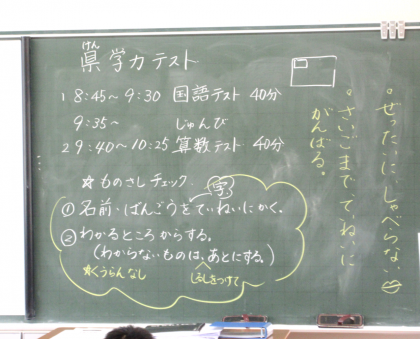 けん
県学力テスト
1 8:45～9:30 国語テスト 40分
9:35～ じゅんび
2 9:40～10:25 算数テスト 40分
☆ものさしチェック
字
① 名前・ばんごうをていねいにかく。
② わかるところからする。
(わからないものは、あとにする。)
☆くうらんなし
しるしをつけて
。ぜったいに、しゃべらない
。さいごまで、ていねいに
がんばる。